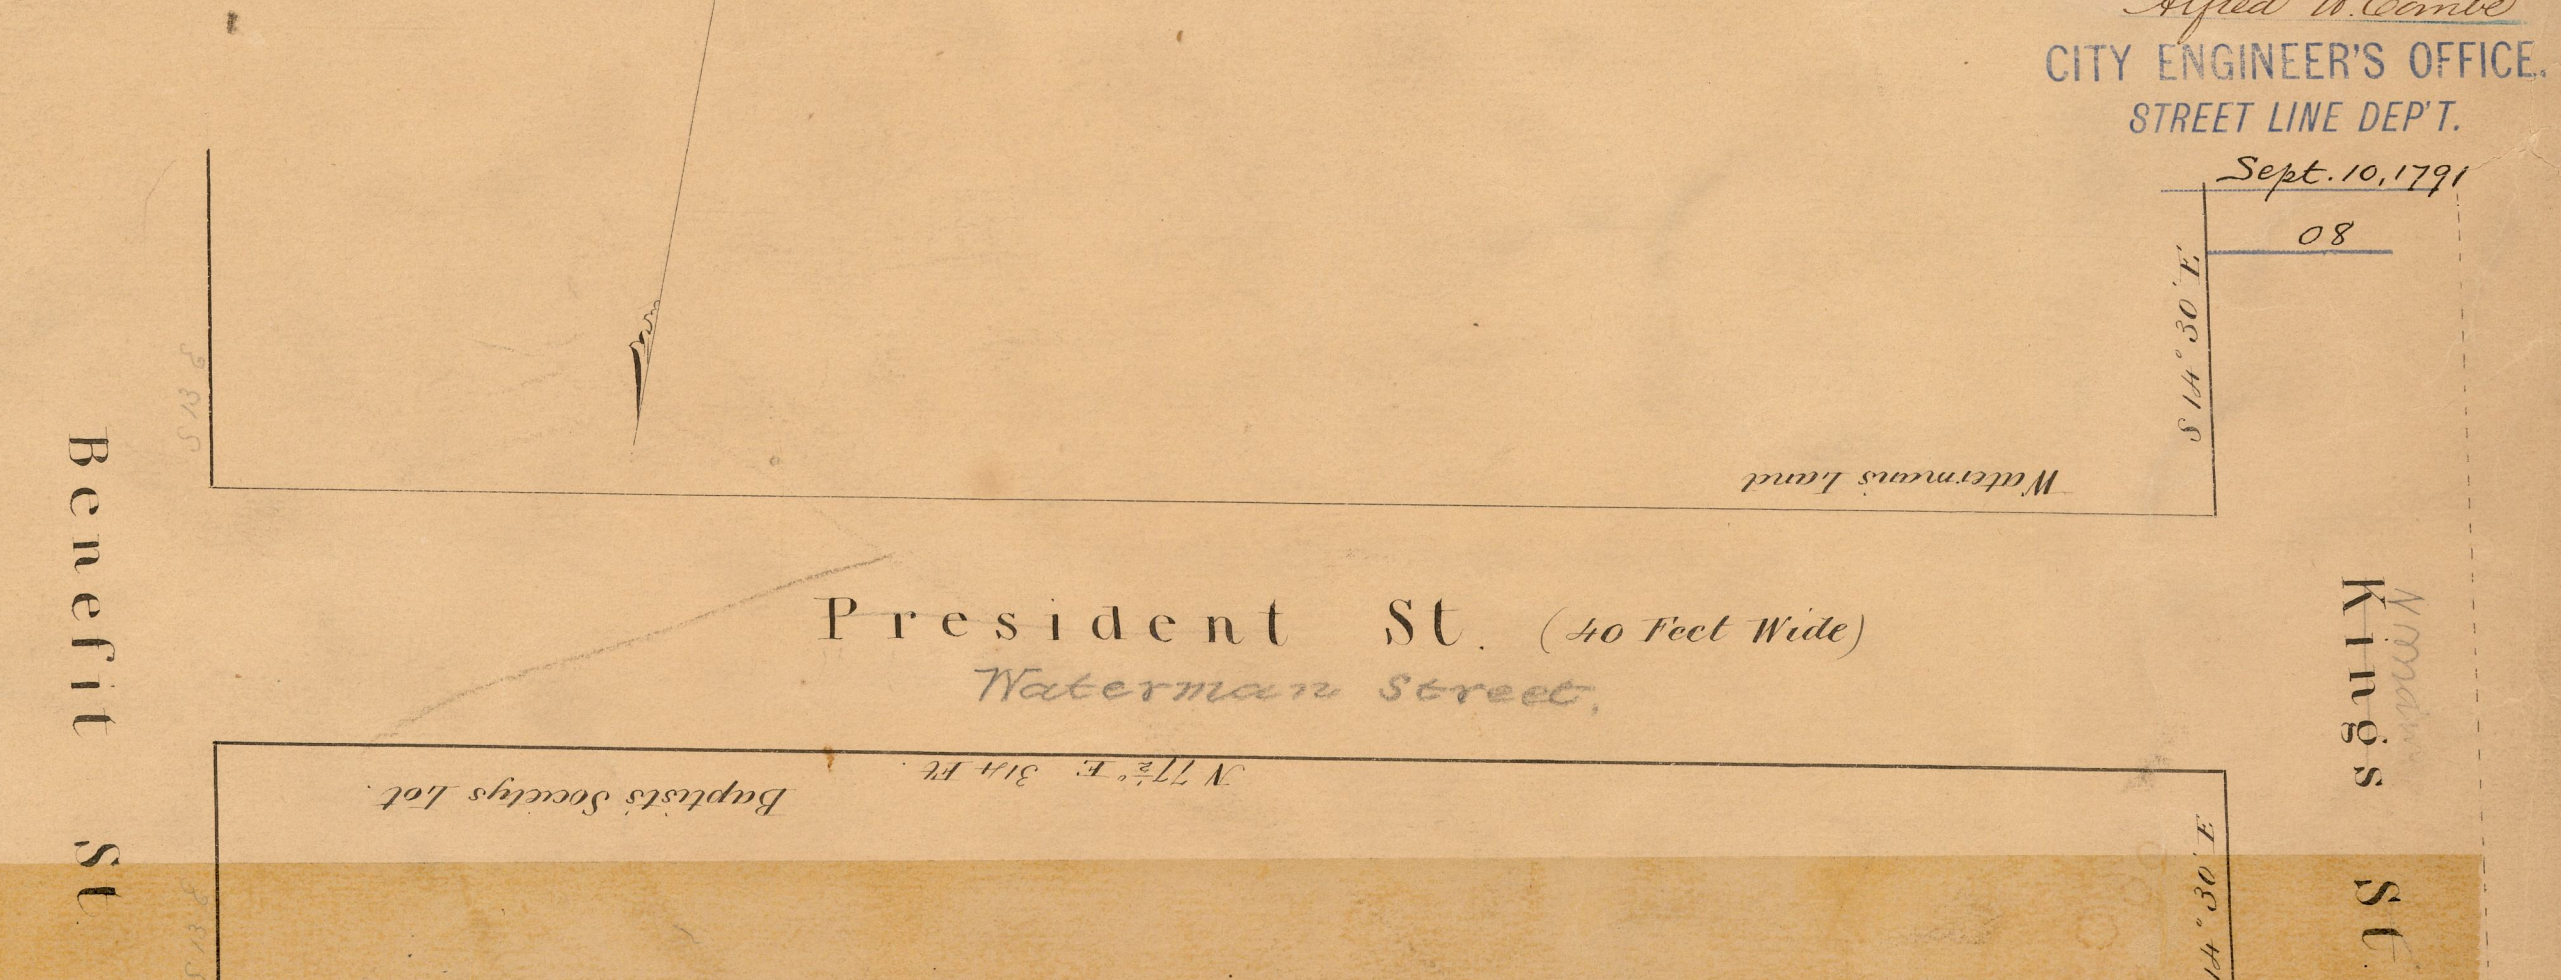 Alfred W. Combe
CITY ENGINEER'S OFFICE.
STREET LINE DEP'T.
Sept. 10, 1791
08
S 14° 30' E
S 13 E
Waterman's Land
Benefit St
President St. (40 Feet Wide)
Waterman Street.
Kings St.
N 77½° E 314 Ft.
Baptist's Societys Lot.
14° 30' E
S 13 E